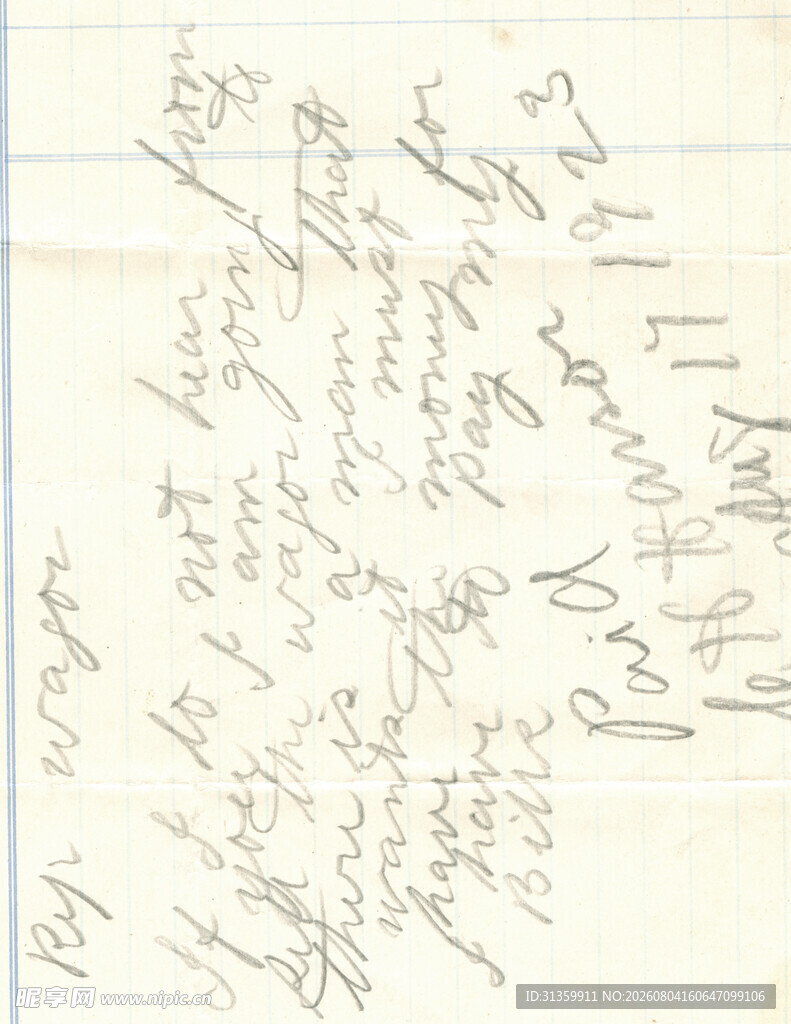 Ry. wagor
If I do not hear from
you I am going to
sell the wagor
there is a man that
wants it I must
have the money for
I have to pay my
Bills
Paid
Banor
17 1923
昵享网 www.nipic.cn
ID:31359911 NO:20260804160647099106